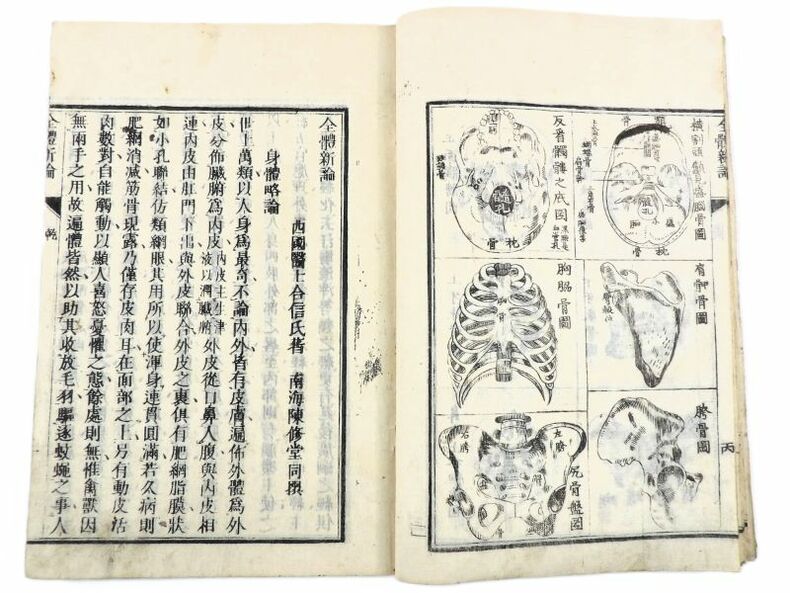 全體新論
丙
橫割頭顱見盛腦骨圖
枕
骨
反看髑髏之底圖
枕
骨
肩胛骨圖
胸脇骨圖
胸骨
胯骨圖
尻骨盤圖
左胯
右胯
全體新論
身體略論
西國醫士合信氏著 南海陳修堂同撰
世上萬類以人身爲最奇不論內外皆有皮膚遍佈外體爲外
皮分佈臟腑爲內皮內皮主生津液以潤臟腑外皮從口鼻入腹與內皮相
連內皮由肛門下出與外皮聯合外皮之裏俱有肥網脂膜狀
如小孔聯結仿類網眼其用所以使渾身連貫圓滿若久病則
肥網消減筋骨現露乃僅存皮肉耳在面部之上另有動皮活
肉數對自能觸動以顯人喜怒憂懼之態餘處則無惟禽獸因
無兩手之用故遍體皆然以助其收放毛羽驅逐蚊蠅之事人
全體新論